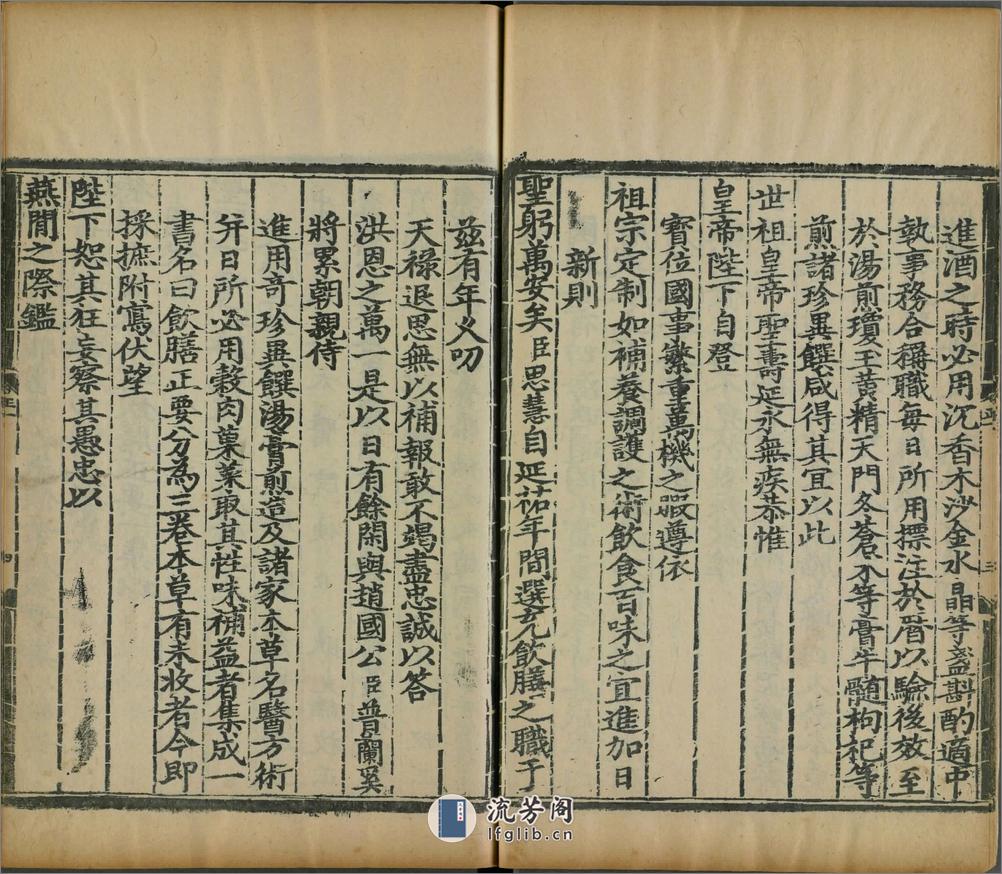 進酒之時必用沉香木沙金水晶等盞斟酌適中
執事務合稱職每日所用標注於曆以驗後效至
於湯煎瓊玉黃精天門冬蒼朮等膏牛髓枸杞等
煎諸珍異饌咸得其宜以此
世祖皇帝聖壽延永無疾恭惟
皇帝陛下自登
寶位國事繁重萬機之暇遵依
祖宗定制如補養調護之術飲食百味之宜進加日
新則
聖躬萬安矣臣思慧自延祐年間選充飲膳之職于
茲有年乂叨
天禄退思無以補報敢不竭盡忠誠以答
洪恩之萬一是以日有餘閑與趙國公臣普蘭奚
將累朝親侍
進用竒珍異饌湯膏煎造及諸家本草名醫方術
并日所必用穀肉菓菜取其性味補益者集成一
書名曰飲膳正要分為三卷本草有未收者今即
採摭附寫伏望
陛下恕其狂妄察其愚忠以
燕閒之際鑑
三
四
流芳阁
lfglib.cn